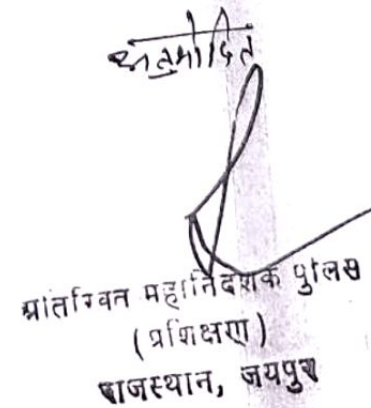 अनुमोदित
अतिरिक्त महानिदेशक पुलिस
(प्रशिक्षण)
राजस्थान, जयपुर